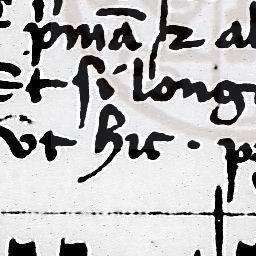 pmā
Et si long
vt hic · p